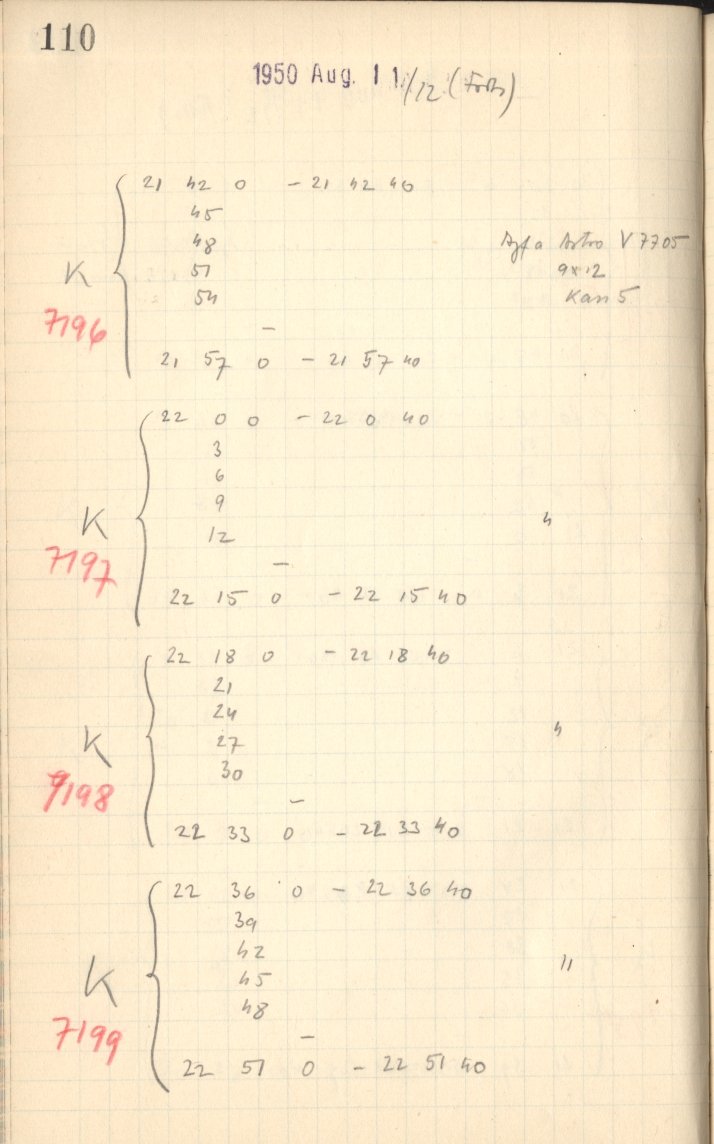 110
1950 Aug. 11/12 (Forts)
21 42 0 – 21 42 40
45
48
51
54
–
21 57 0 – 21 57 40
K
7196
Agfa Astro V 7705
9x12
Kass 5
22 0 0 – 22 0 40
3
6
9
12
–
22 15 0 – 22 15 40
K
7197
"
22 18 0 – 22 18 40
21
24
27
30
–
22 33 0 – 22 33 40
K
7198
"
22 36 0 – 22 36 40
39
42
45
48
–
22 51 0 – 22 51 40
K
7199
"